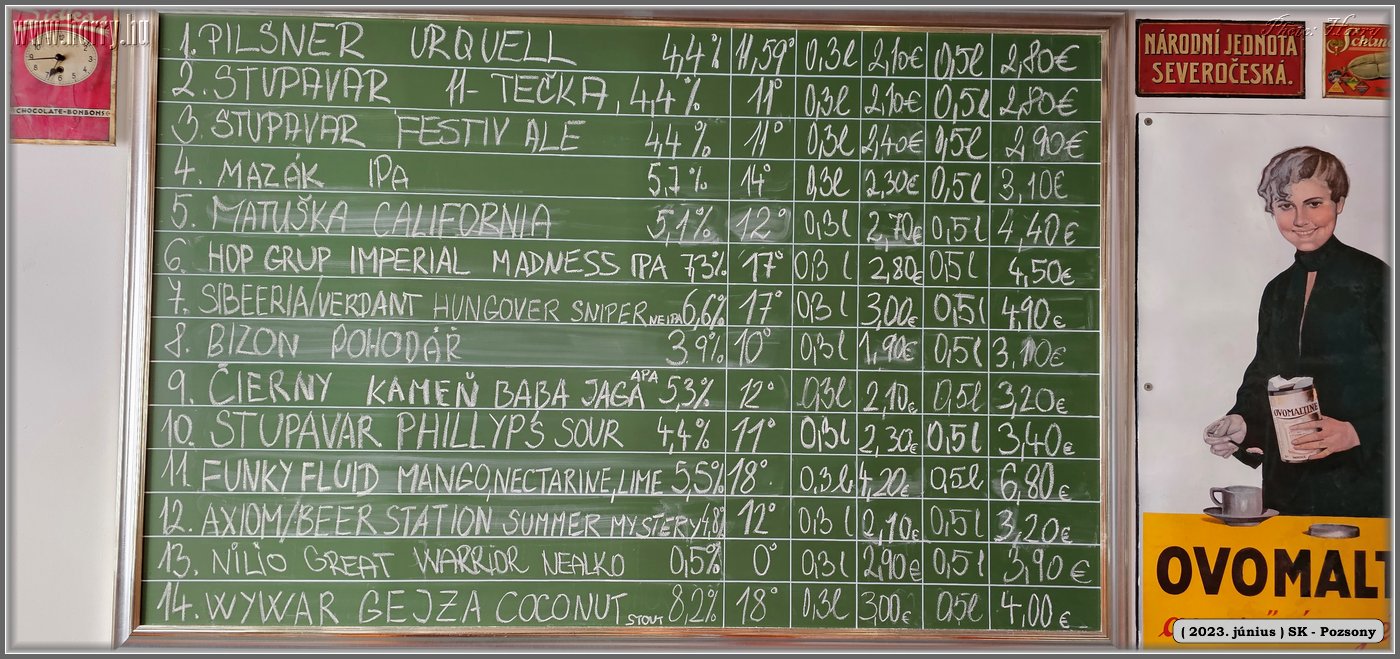 www.horry.hu
Photo: Horry
CHOCOLATE-BONBONS
1. PILSNER URQUELL 4,4% 11,59° 0,3l 2,10€ 0,5l 2,80€
2. STUPAVAR 11- TEČKA, 4,4% 11° 0,3l 2,10€ 0,5l 2,80€
3. STUPAVAR FESTIV ALE 4,4% 11° 0,3l 2,40€ 0,5l 2,90€
4. MAZÁK IPA 5,7% 14° 0,3l 2,30€ 0,5l 3,10€
5. MATUŠKA CALIFORNIA 5,1% 12° 0,3l 2,70€ 0,5l 4,40€
6. HOP GRUP IMPERIAL MADNESS IPA 7,3% 17° 0,3 l 2,80€ 0,5l 4,50€
7. SIBEERIA/VERDANT HUNGOVER SNIPER NEIPA 6,6% 17° 0,3 l 3,00€ 0,5l 4,90€
8. BIZON POHODÁŘ 3,9% 10° 0,3l 1,90€ 0,5l 3,10€
9. ČIERNY KAMEŇ BABA JAGA APA 5,3% 12° 0,3l 2,10€ 0,5l 3,20€
10. STUPAVAR PHILLYP'S SOUR 4,4% 11° 0,3l 2,30€ 0,5l 3,40€
11. FUNKY FLUID MANGO,NECTARINE,LIME 5,5% 18° 0,3l 4,20€ 0,5l 6,80€
12. AXIOM/BEER STATION SUMMER MYSTERY 4,8% 12° 0,3 l 2,10€ 0,5l 3,20€
13. NILIO GREAT WARRIOR NEALKO 0,5% 0° 0,3l 2,90€ 0,5l 3,90€
14. WYWAR GEJZA COCONUT STOUT 8,2% 18° 0,3l 3,00€ 0,5l 4,00€
NÁRODNÍ JEDNOTA
SEVEROČESKÁ.
OVOMALTINE
OVOMALT
( 2023. június ) SK - Pozsony